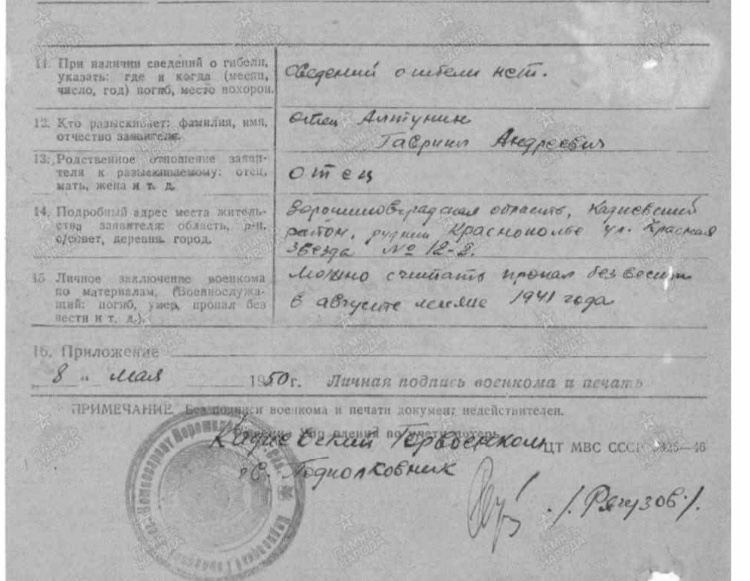 11. При наличии сведений о гибели,
указать: где и когда (месяц,
число, год) погиб, место похорон.
сведений о гибели нет.
12. Кто разыскивает: фамилия, имя,
отчество заявителя.
отец Алтунин
Гаврил Андреевич
13. Родственное отношение заяви-
теля к разыскиваемому: отец,
мать, жена и т. д.
отец
14. Подробный адрес места житель-
ства заявителя: область, р-н,
с/совет, деревня, город.
Ворошиловградская область, Кадиевский
район, рудник Краснополье ул. Красная
Звезда № 12-2.
15 Личное заключение военкома
по материалам. (Военнослужа-
щий: погиб, умер, пропал без
вести и т. д.).
Можно считать пропал без вести
в августе месяце 1941 года
16. Приложение
„ 8 " мая 1950 г. Личная подпись военкома и печать
ПРИМЕЧАНИЕ. Без подписи военкома и печати документ недействителен.
ЦТ МВС СССР
Кадиевский Горвоенком
Подполковник
/Рягузов/.